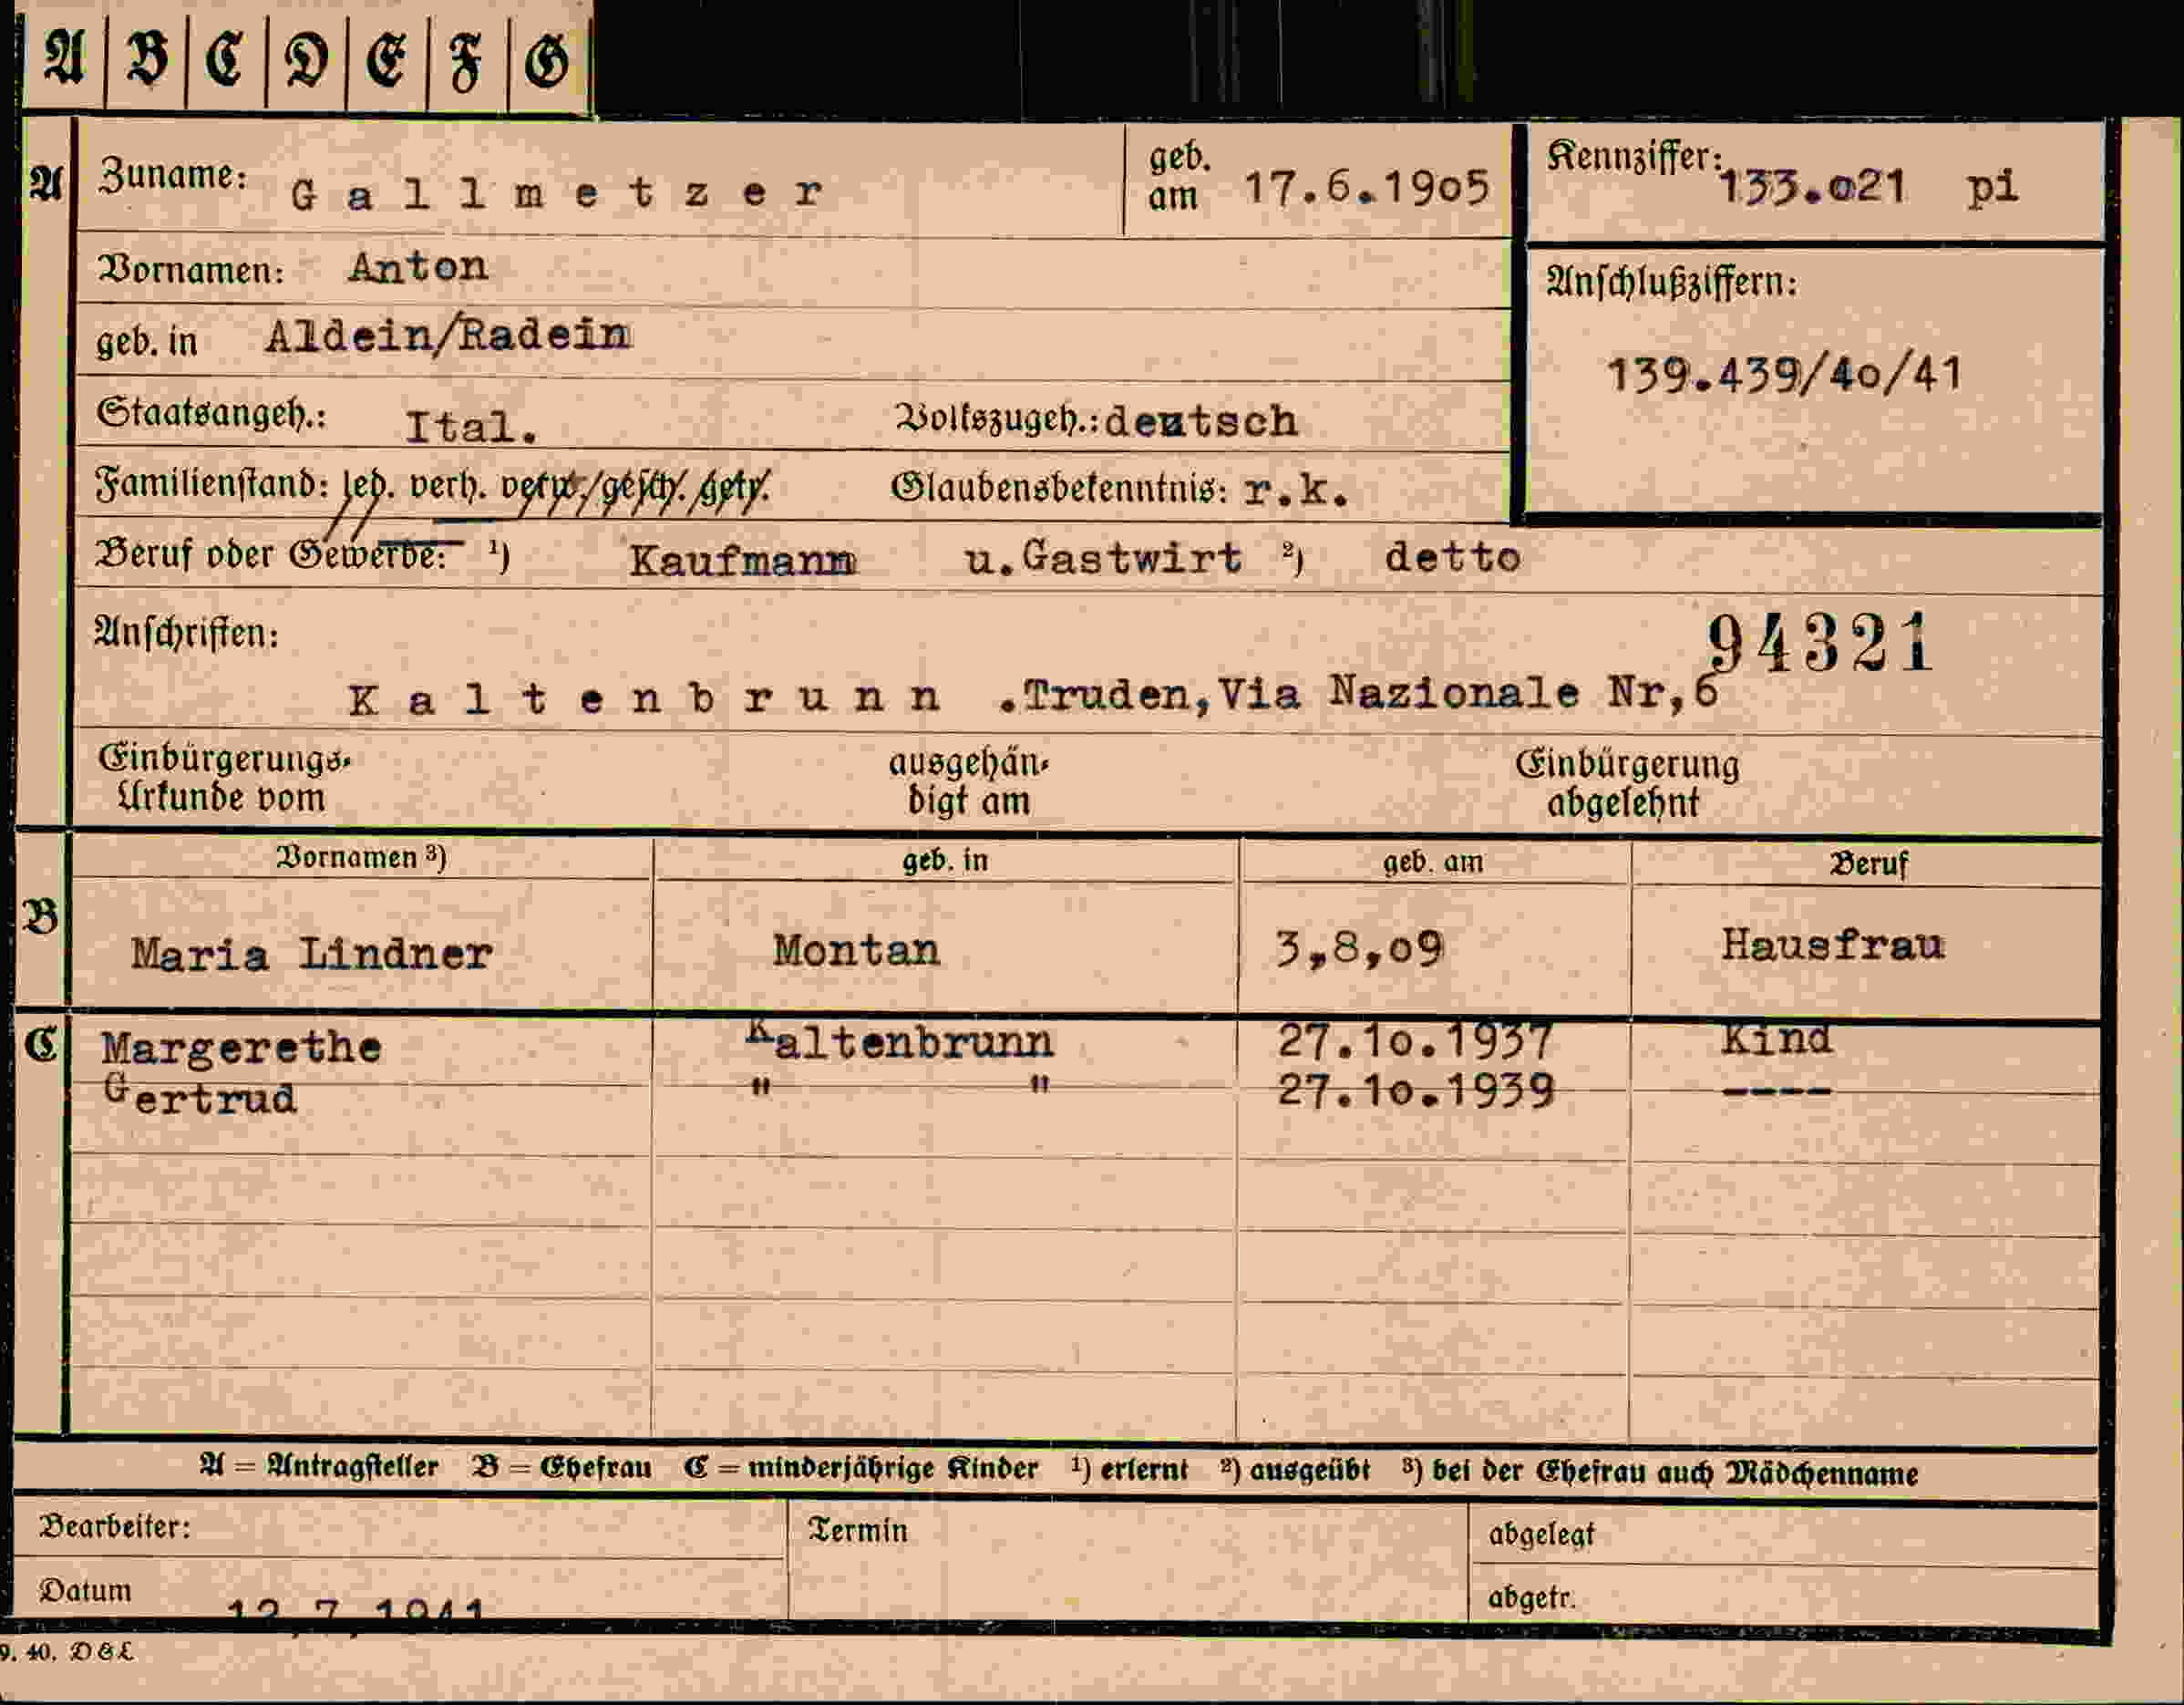 A B C D E F G
A Zuname: Gallmetzer geb. am 17.6.1905 Kennziffer: 133.021 pi
Vornamen: Anton
Anschlußziffern:
geb. in Aldein/Radein
139.439/40/41
Staatsangeh.: Ital. Volkszugeh.: deutsch
Familienstand: led. verh. verw. gesch. getr. Glaubensbekenntnis: r.k.
Beruf oder Gewerbe: ¹) Kaufmann u.Gastwirt ²) detto
Anschriften: 94321
Kaltenbrunn .Truden,Via Nazionale Nr,6
Einbürgerungs- ausgehän- Einbürgerung
Urkunde vom digt am abgelehnt
Vornamen ³) geb. in geb. am Beruf
B Maria Lindner Montan 3,8,09 Hausfrau
C Margerethe Kaltenbrunn 27.10.1937 Kind
Gertrud " " 27.10.1939 ----
A = Antragsteller B = Ehefrau C = minderjährige Kinder ¹) erlernt ²) ausgeübt ³) bei der Ehefrau auch Mädchenname
Bearbeiter: Termin abgelegt
Datum 12,7,1941 abgetr.
9. 40. D&L